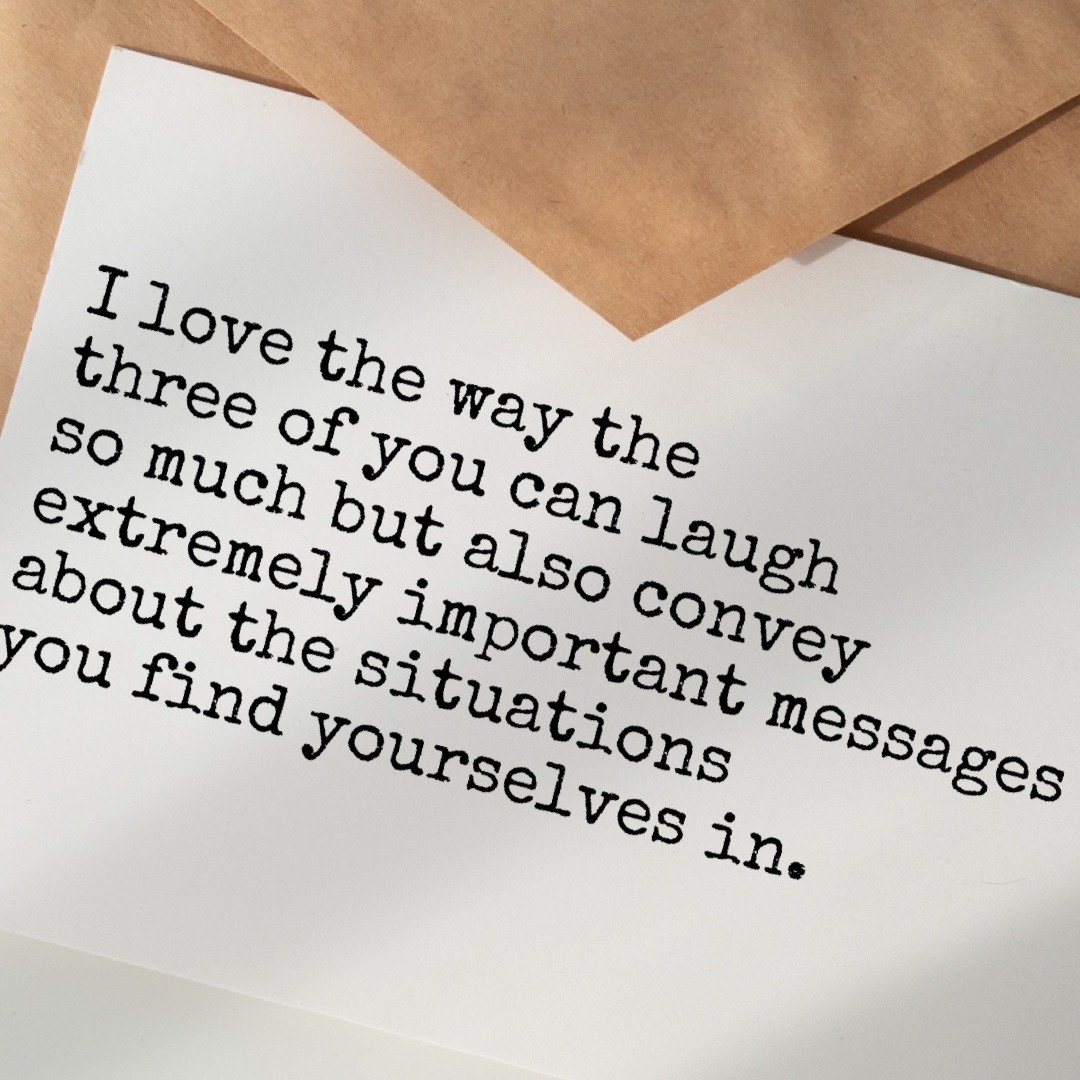 I love the way the
three of you can laugh
so much but also convey
extremely important messages
about the situations
you find yourselves in.